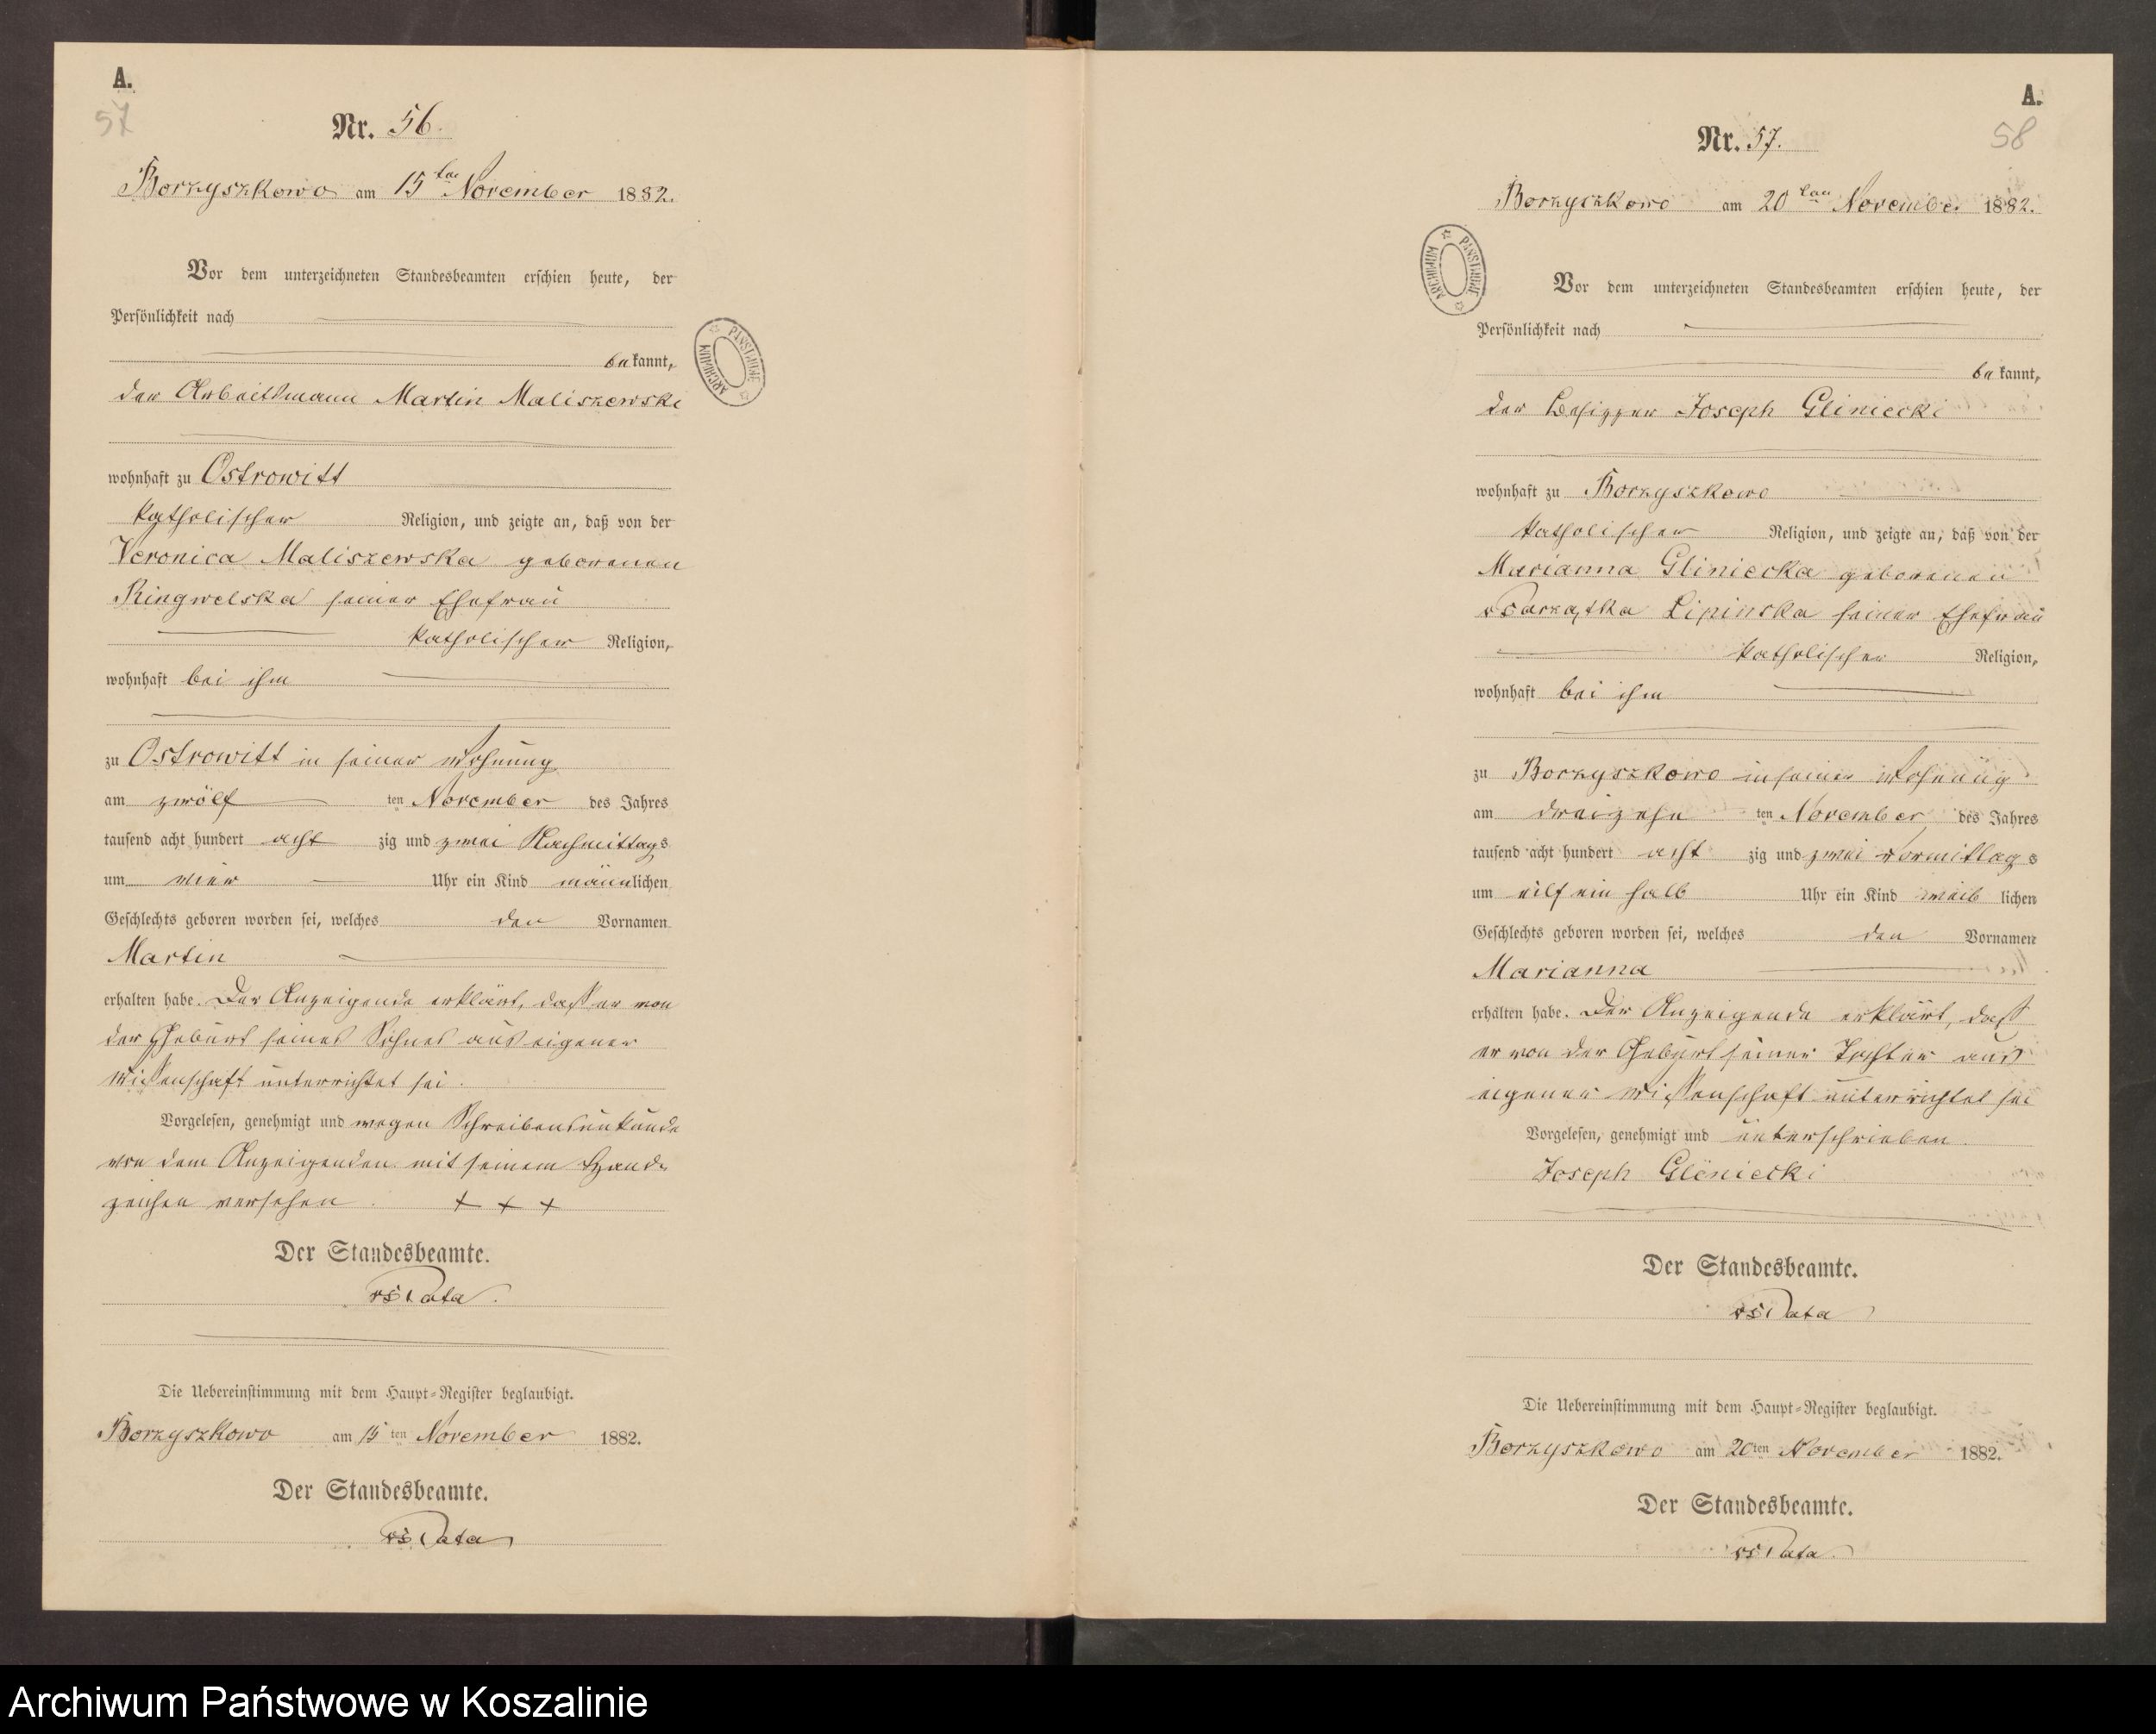 A.
57
Nr. 56.
Borzyszkowo am 15ten November 1882.
Vor dem unterzeichneten Standesbeamten erschien heute, der
Persönlichkeit nach
bekannt,
der Arbeitsmann Martin Maliszewski
wohnhaft zu Ostrowitt
katholischer Religion, und zeigte an, daß von der
Veronica Maliszewska geborenen
Ringwelska seiner Ehefrau
katholischer Religion,
wohnhaft bei ihm
zu Ostrowitt in seiner Wohnung
am zwölf ten November des Jahres
tausend acht hundert acht zig und zwei Nachmittags
um vier Uhr ein Kind männlichen
Geschlechts geboren worden sei, welches den Vornamen
Martin
erhalten habe. Der Anzeigende erklärt, daß er von
der Geburt seines Sohnes aus eigener
Wissenschaft unterrichtet sei.
Vorgelesen, genehmigt und wegen Schreibensunkunde
von dem Anzeigenden mit seinem Hand-
zeichen versehen. + + +
Der Standesbeamte.
Die Uebereinstimmung mit dem Haupt-Register beglaubigt.
Borzyszkowo am 15ten November 1882.
Der Standesbeamte.
ARCHIWUM PAŃSTWOWE
A.
58
Nr. 57.
Borzyszkowo am 20ten November 1882.
ARCHIWUM PAŃSTWOWE
Vor dem unterzeichneten Standesbeamten erschien heute, der
Persönlichkeit nach
bekannt,
der Besitzer Joseph Gliniecki
wohnhaft zu Borzyszkowo
katholischer Religion, und zeigte an, daß von der
Marianna Gliniecka geborenen
Lipinska seiner Ehefrau
katholischer Religion,
wohnhaft bei ihm
zu Borzyszkowo in seiner Wohnung
am dreizehn ten November des Jahres
tausend acht hundert acht zig und zwei Vormittags
um eilf ein halb Uhr ein Kind weib lichen
Geschlechts geboren worden sei, welches den Vornamen
Marianna
erhalten habe. Der Anzeigende erklärt, daß
er von der Geburt seiner Tochter aus
eigener Wissenschaft unterrichtet sei
Vorgelesen, genehmigt und unterschrieben.
Joseph Gliniecki
Der Standesbeamte.
Die Uebereinstimmung mit dem Haupt-Register beglaubigt.
Borzyszkowo am 20ten November 1882.
Der Standesbeamte.
Archiwum Państwowe w Koszalinie